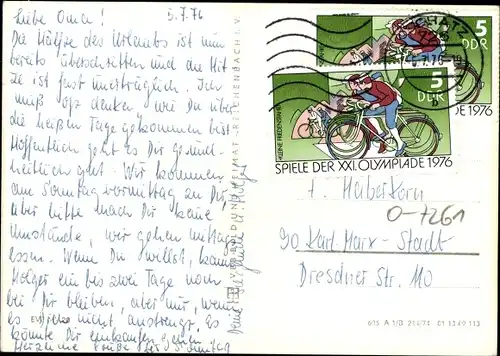 Liebe Oma! 5.7.76
Die Hälfte des Urlaubs ist nun
bereits überschritten und die Hit-
ze ist fast unerträglich. Ich
muß oft denken, wie Du über
die heißen Tage gekommen bist.
Hoffentlich geht es Dir gesund-
heitlich gut. Wir kommen
am Sonntag vormittag zu Dir,
aber bitte mach Dir keine
Umstände, wir gehen mittags
essen. Wenn Du willst, kann
Holger ein bis zwei Tage noch
bei Dir bleiben, aber nur, wenn
es Dich nicht anstrengt. Es
könnte Dir einkaufen gehen.
Herzliche Grüße bis Sonntag
Deine
u. Holger
BILD UND HEIMAT REICHENBACH I. V.
5
DDR
5
DDR
KLEINE FRIEDENSFAHRT
SPIELE DER XXI. OLYMPIADE 1976
DE 1976
7.76
Haberkorn
0-7261
90 Karl-Marx-Stadt
Dresdner Str. 110
01 13 49 113